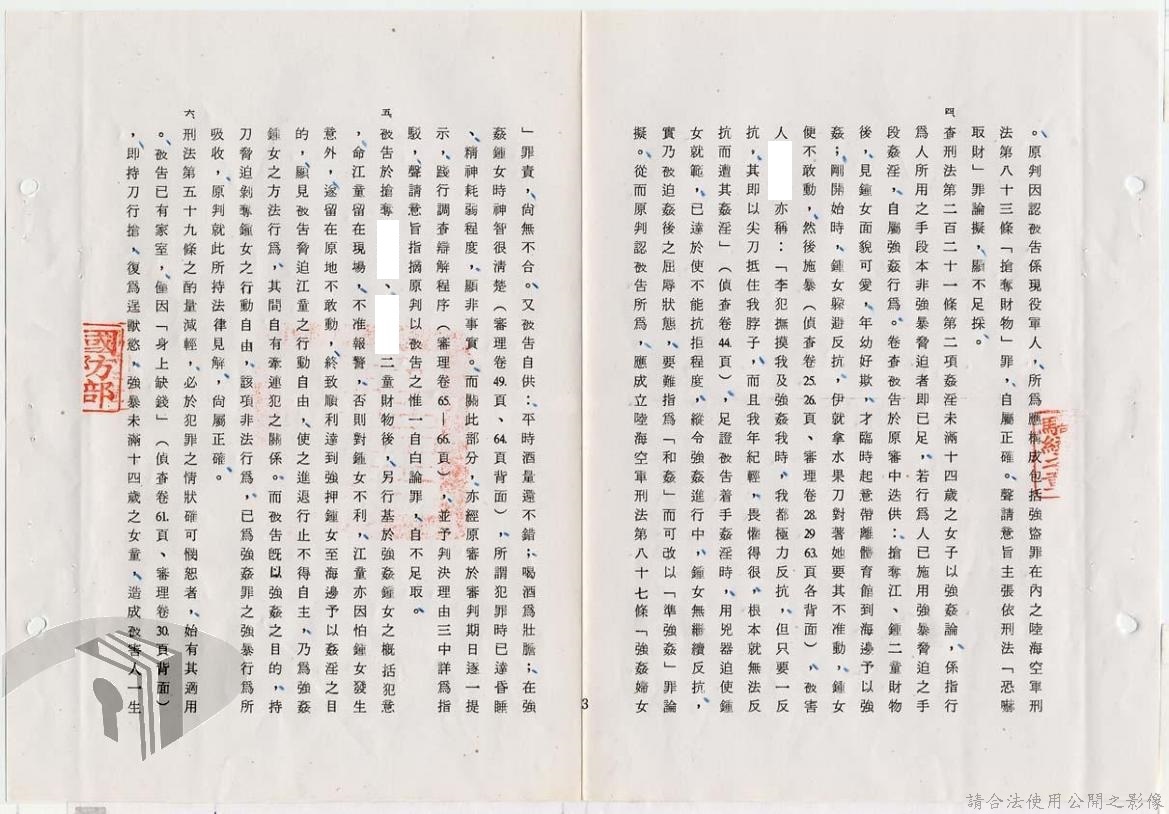 。原判因認被告係現役軍人，所為應構成包括強盜罪在內之陸海空軍刑
法第八十三條「搶奪財物」罪，自屬正確。聲請意旨主張依刑法「恐嚇
取財」罪論擬，顯不足採。
四、查刑法第二百二十一條第二項姦淫未滿十四歲之女子以強姦論，係指行
為人所用之手段本非強暴脅迫者即已足，若行為人已施用強暴脅迫之手
段姦淫，自屬強姦行為。卷查被告於原審中迭供：搶奪江、鍾二童財物
後，見鍾女面貌可愛，年幼好欺，才臨時起意帶離體育館到海邊予以強
姦；剛開始時，鍾女躲避反抗，伊就拿水果刀對著她要其不准動，鍾女
便不敢動，然後施暴（偵查卷25.26.頁、審理卷28.29 63.頁各背面）、被害
人　　亦稱：「李犯撫摸我及強姦我時，我都極力反抗，但只要一反
抗，其即以尖刀抵住我脖子，而且我年紀輕，畏懼得很，根本就無法反
抗而遭其姦淫」（偵查卷44.頁），足證被告着手姦淫時，用兇器迫使鍾
女就範，已達於使不能抗拒程度，縱令強姦進行中，鍾女無繼續反抗，
實乃被迫姦後之屈辱狀態，要難指為「和姦」而可改以「準強姦」罪論
擬。從而原判認被告所為，應成立陸海空軍刑法第八十七條「強姦婦女
」罪責，尚無不合。又被告自供：平時酒量還不錯；喝酒為壯膽；在強
姦鍾女時神智很清楚（審理卷49.頁、64.頁背面），所謂犯罪時已達昏睡
、精神耗弱程度，顯非事實。而關此部分，亦經原審於審判期日逐一提
示，踐行調查辯解程序（審理卷65.—66.頁），並予判決理由三中詳為指
駁，聲請意旨指摘原判以被告之惟一自白論罪，自不足取。
五、被告於搶奪　　、　　二童財物後，另行基於強姦鍾女之概括犯意
，命江童留在現場，不准報警，否則對鍾女不利，江童亦因怕鍾女發生
意外，遂留在原地不敢動，終致順利達到強押鍾女至海邊予以姦淫之目
的，顯見被告脅迫江童之行動自由，使之進退行止不得自主，乃為強姦
鍾女之方法行為，其間自有牽連犯之關係。而被告既以強姦之目的，持
刀脅迫剝奪鍾女之行動自由，該項非法行為，已為強姦罪之強暴行為所
吸收，原判就此所持法律見解，尚屬正確。
六、刑法第五十九條之酌量減輕，必於犯罪之情狀確可憫恕者，始有其適用
。被告已有家室，僅因「身上缺錢」（偵查卷61.頁、審理卷30.頁背面）
，即持刀行搶，復為逞獸慾，強暴未滿十四歲之女童，造成被害人一生
3
國防部
請合法使用公開之影像